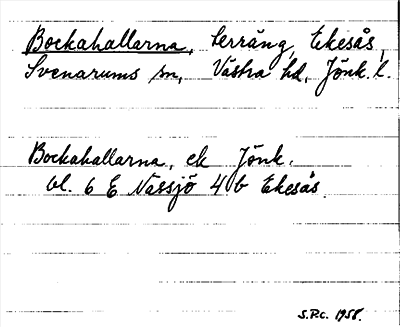 Bockahallarna, terräng, Ekesås,
Svenarums sn, Västra hd, Jönk. l.
Bockahallarna, ek Jönk.
bl. 6 E Nässjö 4 b Ekesås.
S.Rc. 1958.